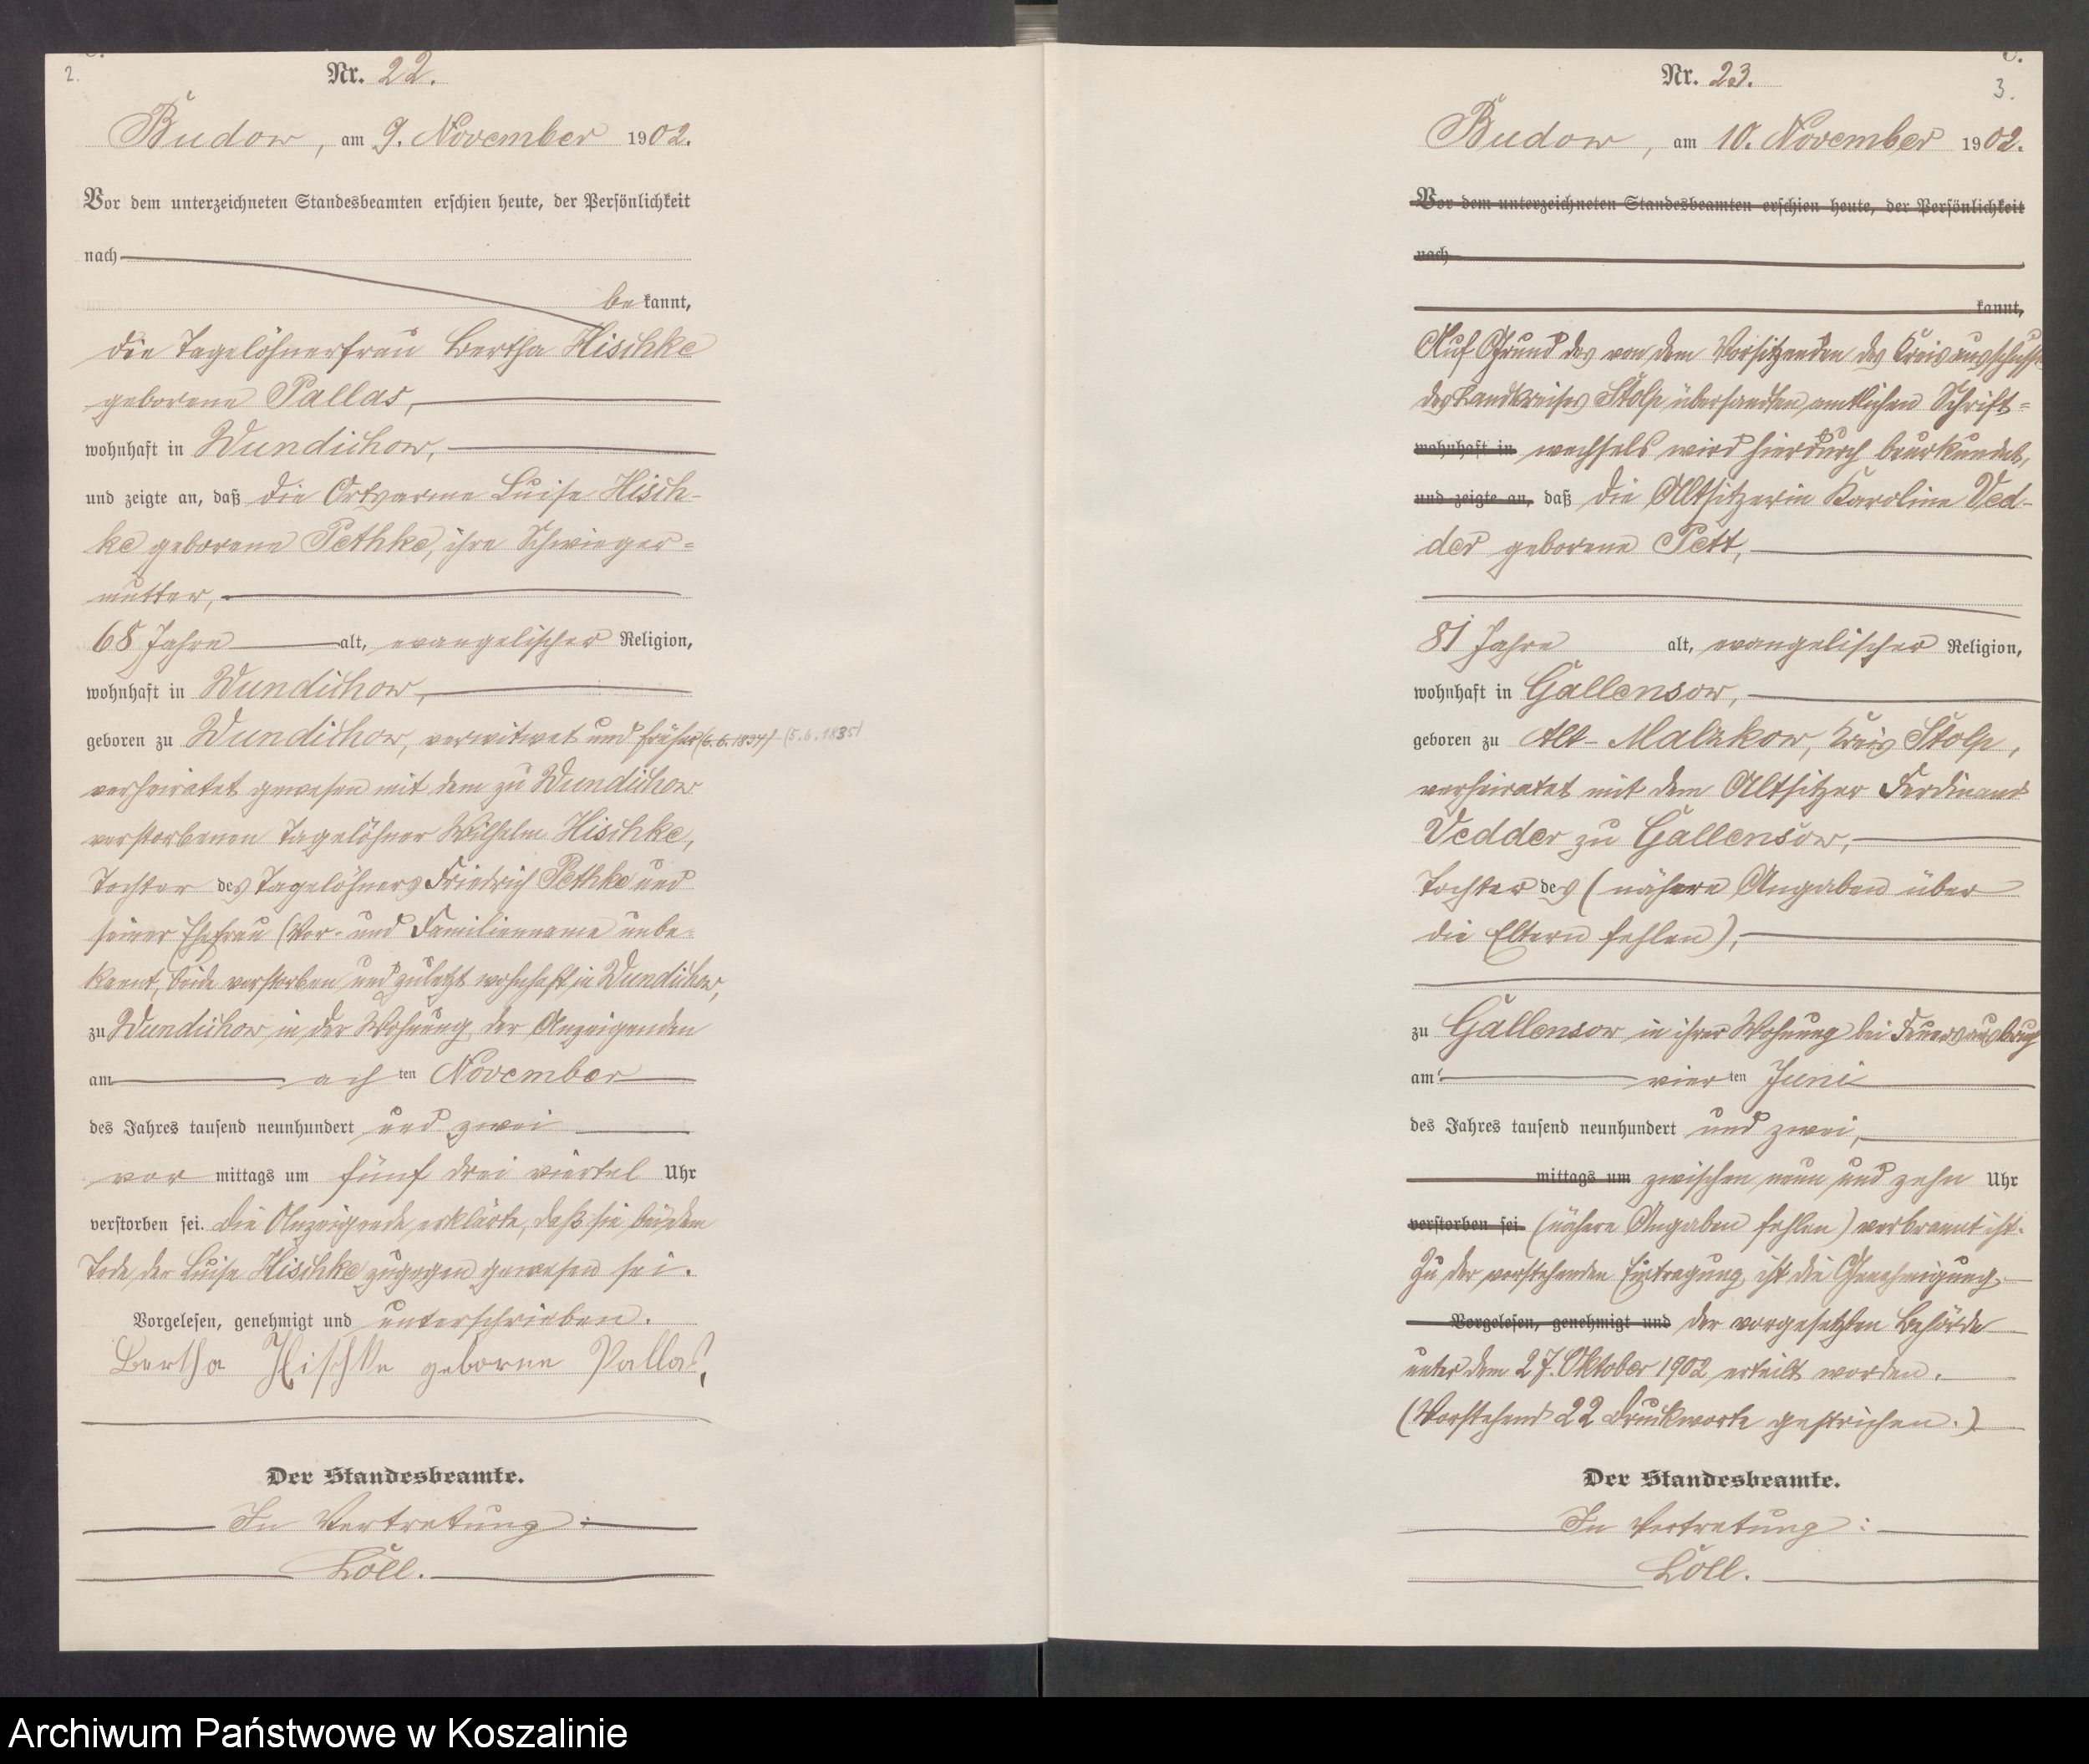 2.
Nr. 22.
Budow, am 9. November 1902.
Vor dem unterzeichneten Standesbeamten erschien heute, der Persönlichkeit
nach
be kannt,
die Tagelöhnerfrau Bertha Hischke
geborene Pallas,
wohnhaft in Wundichow,
und zeigte an, daß die Ortsarme Luise Hisch-
ke geborene Pethke, ihre Schwieger-
mutter,
68 Jahre alt, evangelischer Religion,
wohnhaft in Wundichow,
geboren zu Wundichow, verwitwet und früher (6.6.1834) (5.6.1835)
verheiratet gewesen mit dem zu Wundichow
verstorbenen Tagelöhner Wilhelm Hischke,
Tochter des Tagelöhners Friedrich Pethke und
seiner Ehefrau (Vor- und Familienname unbe-
kannt, beide verstorben und zuletzt wohnhaft in Wundichow,
zu Wundichow in der Wohnung der Anzeigenden
am ach ten November
des Jahres tausend neunhundert und zwei
vor mittags um fünf drei viertel Uhr
verstorben sei. Die Anzeigende erklärte, daß sie bei dem
Tode der Luise Hischke zugegen gewesen sei.
Vorgelesen, genehmigt und unterschrieben.
Bertha Hischke geborne Pallas,
Der Standesbeamte.
In Vertretung:
Löll.
3.
Nr. 23.
Budow, am 10. November 1902.
Vor dem unterzeichneten Standesbeamten erschien heute, der Persönlichkeit
nach
kannt,
Auf Grund des von dem Vorsitzenden des Kreisausschusses
des Landkreises Stolp übersandten amtlichen Schrift-
wohnhaft in wechsels wird hierdurch beurkundet,
und zeigte an, daß die Altsitzerin Karoline Ved-
der geborene Pett,
81 Jahre alt, evangelischer Religion,
wohnhaft in Gallensow,
geboren zu Alt-Malzkow, Kreis Stolp,
verheiratet mit dem Altsitzer Ferdinand
Vedder zu Gallensow,
Tochter des (nähere Angaben über
die Eltern fehlen),
zu Gallensow in ihrer Wohnung bei Feuersausbruch
am vier ten Juni
des Jahres tausend neunhundert und zwei,
mittags um zwischen neun und zehn Uhr
verstorben sei (nähere Angaben fehlen) verbrannt ist.
Zu der vorstehenden Eintragung ist die Genehmigung
Vorgelesen, genehmigt und der vorgesetzten Behörde
unter dem 27. Oktober 1902 erteilt worden.
(Vorstehend 22 Druckworte gestrichen.)
Der Standesbeamte.
In Vertretung:
Löll.
Archiwum Państwowe w Koszalinie